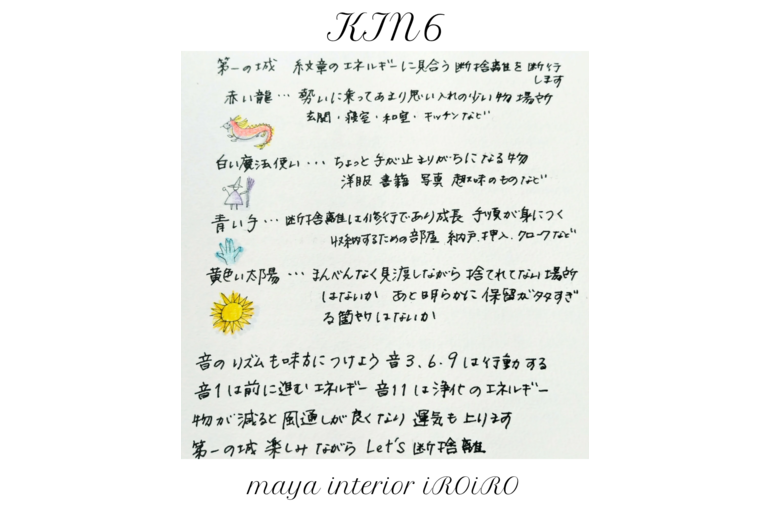 KIN6
第一の城 紋章のエネルギーに見合う断捨離を断行
します
赤い龍… 勢いに乗ってあまり思い入れの少い物 場所
玄関・寝室・和室・キッチンなど
白い魔法使い・・・ ちょっと手が止まりがちになる物
洋服 書籍 写真 趣味のものなど
青い手… 断捨離は修行であり成長 手順が身につく
収納するための部屋 納戸.押入.クロークなど
黄色い太陽 … まんべんなく見渡しながら 捨てれてない場所
はないか あと明らかに保留が多すぎ
る箇所はないか
音のリズムも味方につけよう 音3.6.9は行動する
音1は前に進むエネルギー 音11は浄化のエネルギー
物が減ると風通しが良くなり 運気も上ります
第一の城 楽しみながら Let's 断捨離
maya interior iROiRO